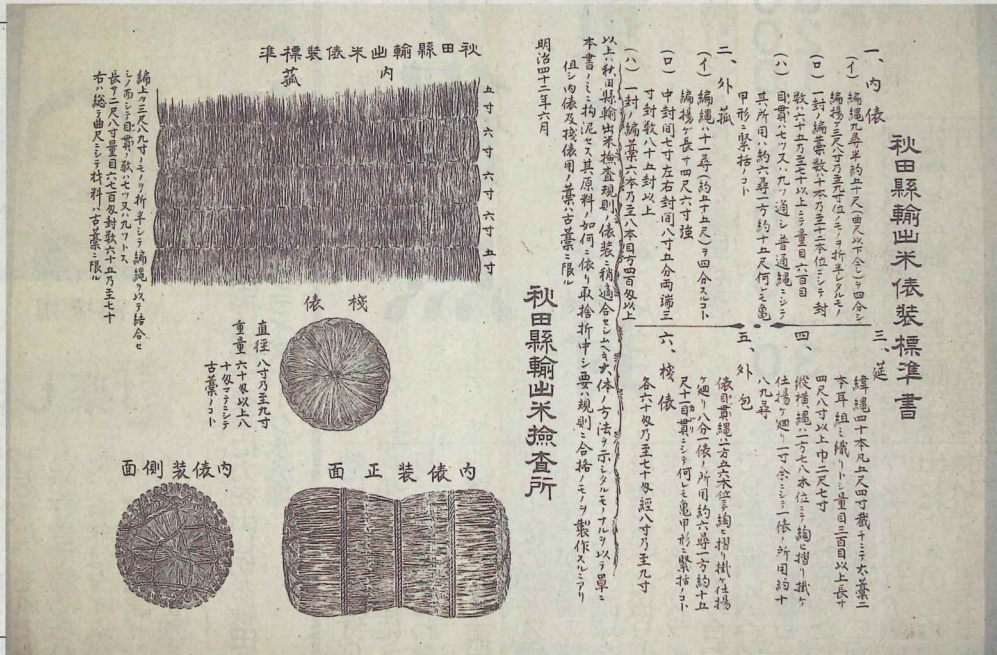 秋田縣輸出米俵装標準書
一、内俵
(イ) 編縄九尋半約五十尺(曲尺以下仝シ)ヲ四分シ
編揚ゲ三尺八寸乃至九寸位ノモノヲ折半シタルモノ
(ロ) 一封ノ編藁数ハ十本乃至十二本位ニシテ封
数ハ六十五乃至七十以上ニテ量目六百目
(ハ) 目貫ハ七ツ又ハ九ツ通シ普通縄ニシテ
其所用ハ約六尋一方約十五尺何レモ亀
甲形ニ緊括ノコト
二、外菰
(イ) 編縄ハ十一尋(約五十五尺)ヲ四分スルコト
編揚ゲ長サ四尺六寸強
(ロ) 中封間七寸左右封間八寸五分両端三
寸封数八十五封以上
(ハ) 一封ノ編藁六本乃至八本目方四百匁以上
三、莚
緯縄四十本凡五尺四寸裁チニテ太藁二
本耳組ミ織リトシ量目三百目以上長サ
四尺八寸以上巾二尺七寸
四、
縦横縄ハ一方七八本位ニテ綯ヒ摺リ掛ケ
仕揚ゲ廻リ一寸余ニシテ一俵ノ所用約十
八九尋
五、外包
俵目貫縄ハ一方五六本位ニテ綯ヒ摺リ掛ケ仕揚
ゲ廻リ八分一俵ノ所用約六尋一方約十五
尺十一目貫ニシテ何レモ亀甲形ニ緊括ノコト
六、桟俵
各六十匁乃至七十匁経八寸乃至九寸
以上ハ秋田縣輸出米檢査規則ノ俵装ニ稍適合セシムベキ大体ノ方法ヲ示シタルモノナルヲ以テ單ニ
本書ノミニ拘泥セス其原料ノ如何ニ依リ取捨折中シ要ハ規則ニ合格ノモノヲ製作スルニアリ
但シ内俵及桟俵用ノ藁ハ古藁ニ限ル
明治四十二年六月
秋田縣輸出米檢査所
秋田縣輸出米俵装標準
内菰
五寸
六寸
六寸
六寸
五寸
編上ゲ三尺八九寸ノモノヲ折半シテ編縄ヲ以テ結合セ
シ而シテ目貫ノ数ハ七ツ又ハ九ツトス
長サ二尺八寸量目六七百匁封数六十五乃至七十
右ハ総テ曲尺ニシテ材料ハ古藁ニ限ル
桟俵
直径 八寸乃至九寸
重量 六十匁以上八
十匁マデニシテ
古藁ノコト
内俵装正面
内俵装側面